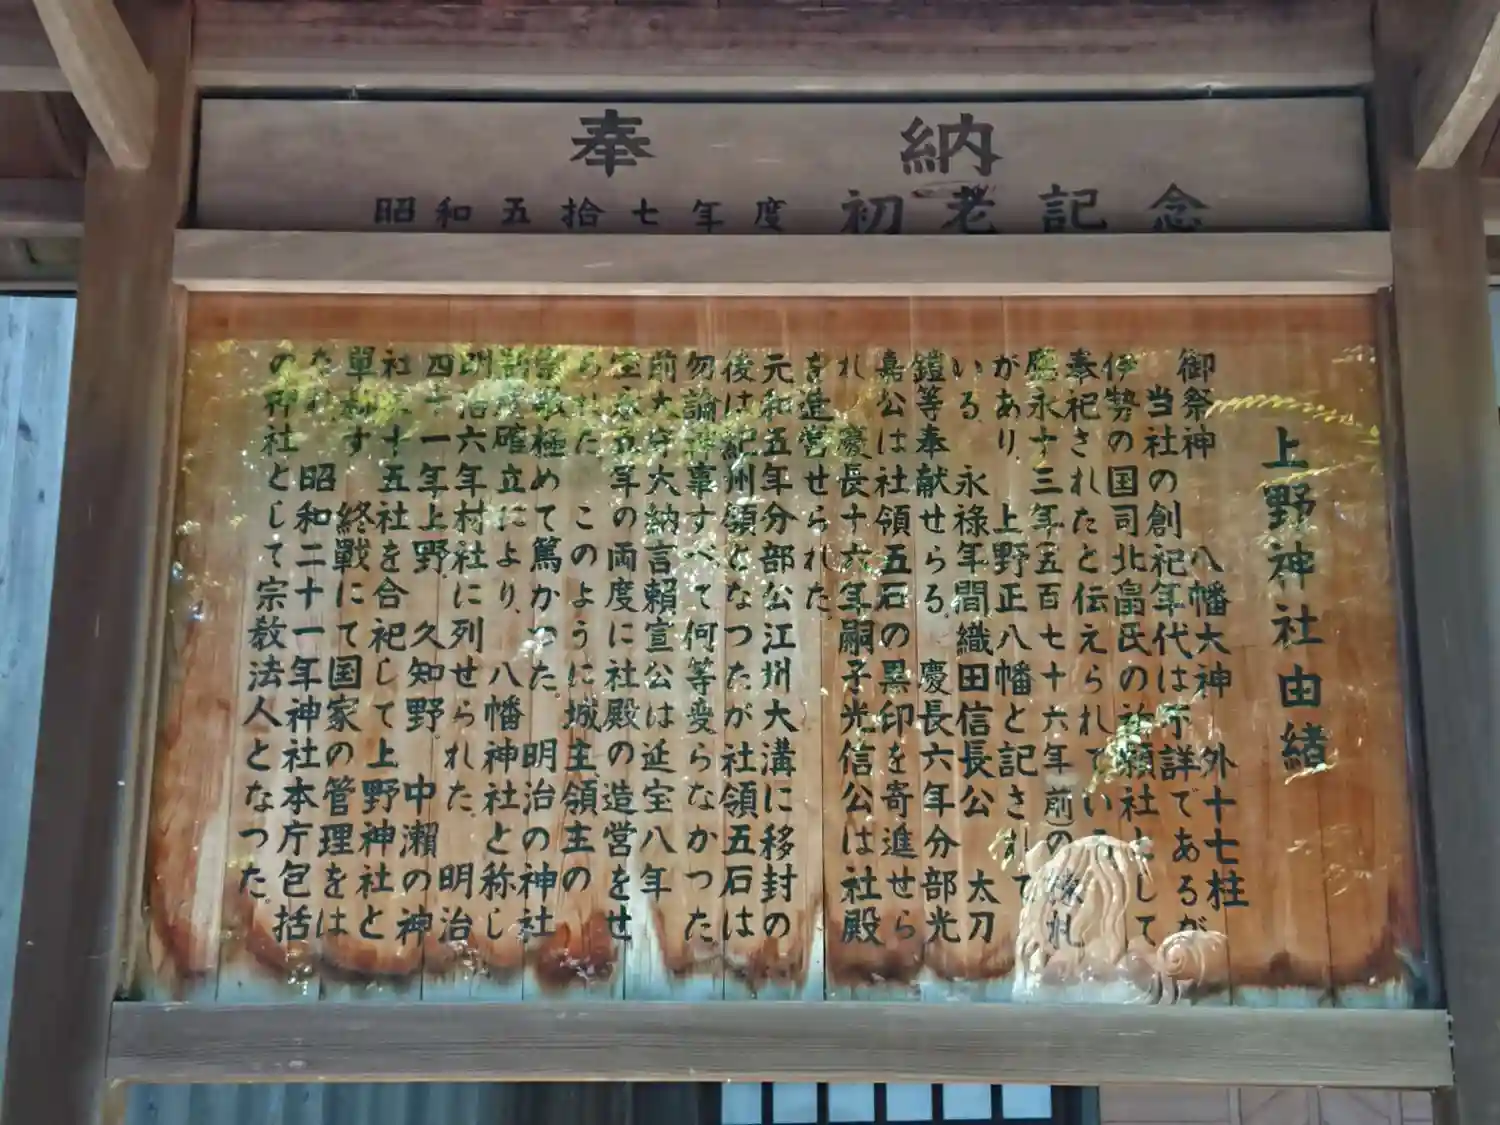 奉納
昭和五拾七年度 初老記念
上野神社由緒
御祭神 八幡大神 外十七柱
当社の創祀年代は不詳であるが
伊勢の国司北畠氏の祈願社として
奉祀されたと伝えられている
應永十三年五百七十六年前の棟札
があり 上野正八幡と記されて
いる 永禄年間織田信長公 太刀
鎧等奉献せらる 慶長六年分部光
嘉公は社領五石の黒印を寄進せら
れ 慶長十六年嗣子光信公は社殿
を造営せられた
元和五年分部公江州大溝に移封の
後は紀州領となつたが社領五石は
勿論神事すべて何等変らなかつた
前大守大納言頼宣公は延宝八年
宝永五年の両度に社殿の造営をせ
られた このように城主領主の
崇敬極めて篤かつた 明治の神社
制度確立により 八幡神社と称し
明治六年村社に列せられた 明治
四十一年上野 久知野 中瀬の神
社 十五社を合祀して上野神社と
単称す 終戦にて国家の管理をは
なれ 昭和二十一年神社本庁包括
の神社として宗教法人となつた